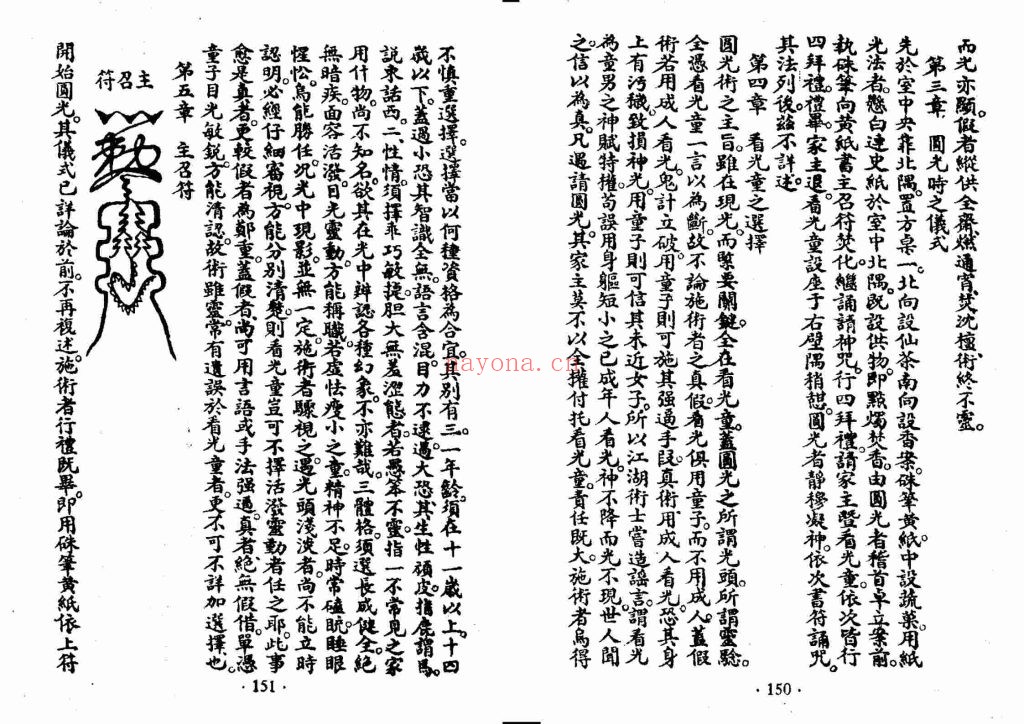 而光亦顯。假者縱供全齋。燃通宵。焚沈檀。術終不靈。
第三章　圓光時之儀式
先於室中央靠北隅。置方桌一。北向設仙茶。南向設香案。硃筆黃紙。中設蔬菓。用紙
光法者。懸白連史紙於室中北隅。既設供物。即點燭焚香。由圓光者稽首卓立案前。
執硃筆向黃紙書主召符。焚化。繼誦請神咒。行四拜禮。請家主暨看光童。依次皆行
四拜禮。禮畢。家主退。看光童設座于右壁隅稍憇。圓光者靜穆凝神。依次書符誦咒。
其法列後。茲不詳述。
第四章　看光童之選擇
圓光術之主旨。雖在現光。而緊要關鍵。全在看光童。蓋圓光之所謂光頭。所謂靈驗。
全憑看光童一言以為斷。故不論施術者之真假。看光俱用童子。而不用成人。蓋假
術若用成人看光。鬼計立破。用童子則可施其强逼手段。真術用成人看光。恐其身
上有汚穢。致損神光。用童子則可信其未近女子。所以江湖術士嘗造謠言。謂看光
為童男之神賦特權。苟誤用身軀短小之已成年人看光。神不降而光不現。世人聞
之。信以為真。凡遇請圓光。其家主莫不以全權付托看光童。責任既大。施術者烏得
· 150 ·
不慎重選擇。選擇當以何種資格為合宜。其別有三。一年齡。須在十一歲以上。十四
歲以下。蓋過小恐其智識全無。語言含混。目力不逮。過大恐其生性頑皮。指鹿謂馬。
說東話西。二、性情。須擇乖巧敏捷。胆大無羞澀態者。若愚笨不靈。指一不常見之家
用什物。尚不知名。欲其在光中辨認各種幻象。不亦難哉。三體格。須選長成健全。絕
無暗疾。面容活潑。目光靈動。方能稱職。若虛怯瘦小之童。精神不足。時常瞌眈。睡眼
惺忪。烏能勝任。況光中現影。並無一定。施術者驟視之。遇光頭淺淡者。尚不能立時
認明。必經仔細審視。方能分別清楚。則看光童豈可不擇活潑靈動者任之耶。此事
愈是真者。更較假者為鄭重。蓋假者尚可用言語或手法强逼。真者絕無假借。單憑
童子目光敏銳。方能清認。故術雖靈。常有遺誤於看光童者。更不可不詳加選擇也。
第五章　主召符
主召符
開始圓光。其儀式已詳論於前。不再複述。施術者行禮既畢。即用硃筆黃紙。依上符
· 151 ·
nayona.cn